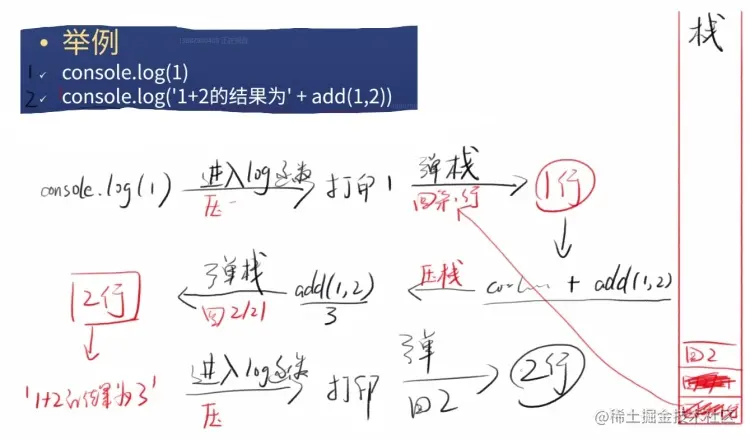 栈
举例
1 console.log(1)
2 console.log('1+2的结果为' + add(1,2))
console.log(1) 进入log函数 压 打印1 弹栈 回第1行 1行
2行 弹栈 add(1,2) 3 压栈 + add(1,2)
'1+2的结果为3' 进入log函数 压 打印 弹 回2 2行
回2
@稀土掘金技术社区